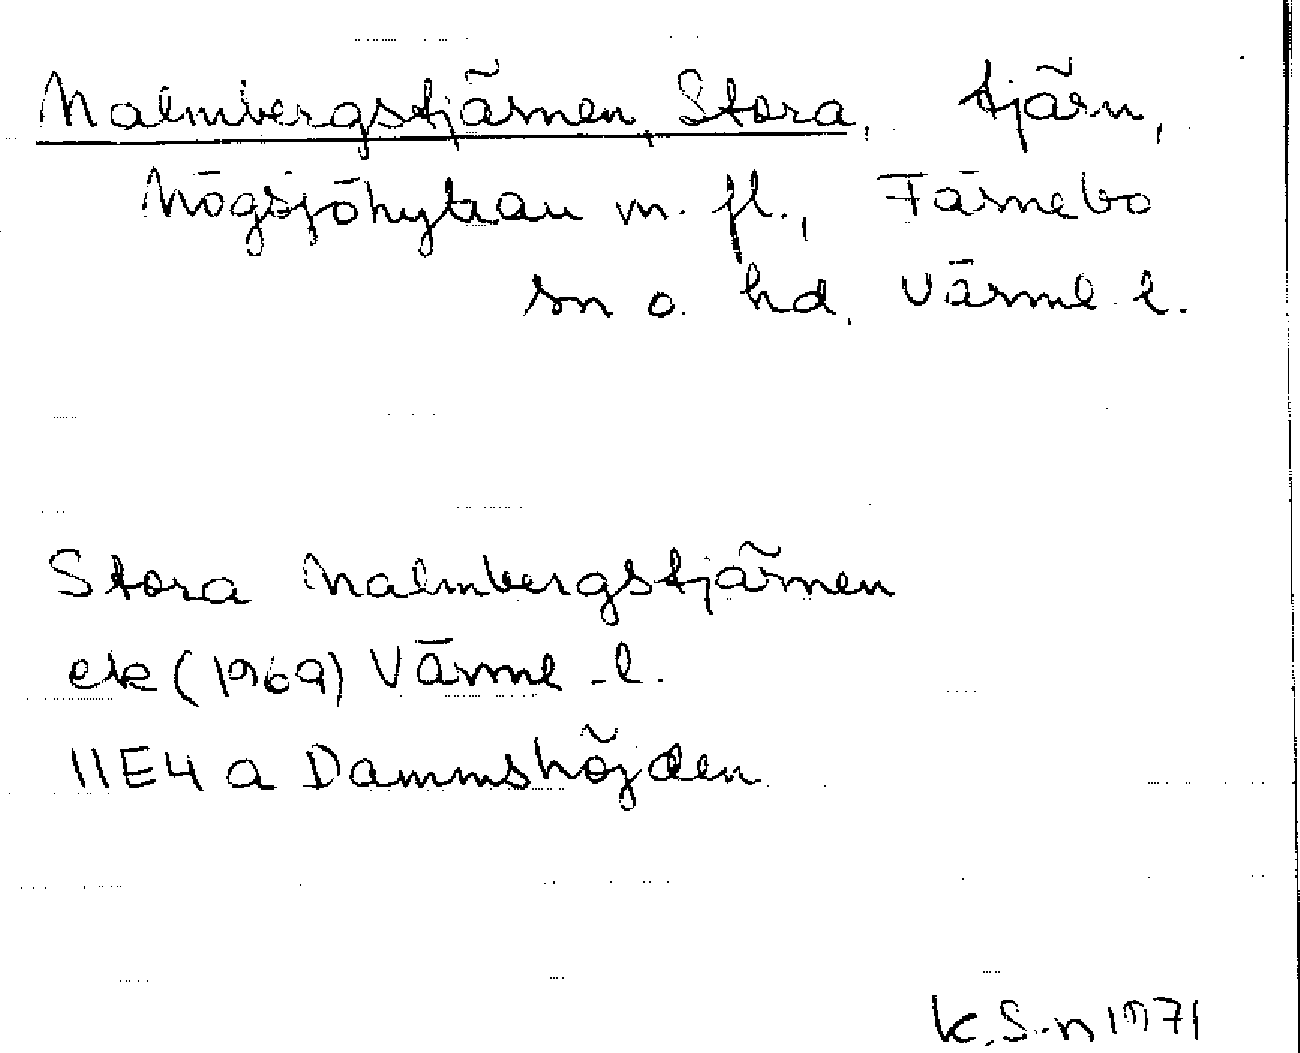 Malmbergstjärnen, Stora, tjärn,
Högsjöhyttan m. fl., Färnebo
sn o. hd. Värml. l.
Stora Malmbergstjärnen
ek (1969) Värml. l.
11E4a Dammshöjden
K.S-n 1971